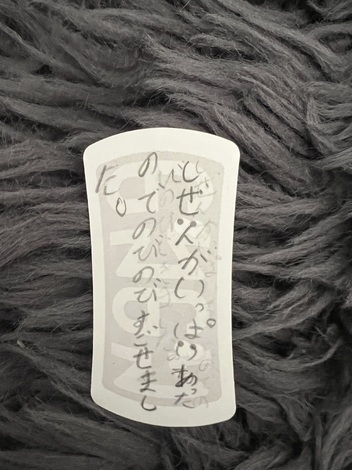 しぜんがいっぱいあった
のでのびのびすごせまし
た。